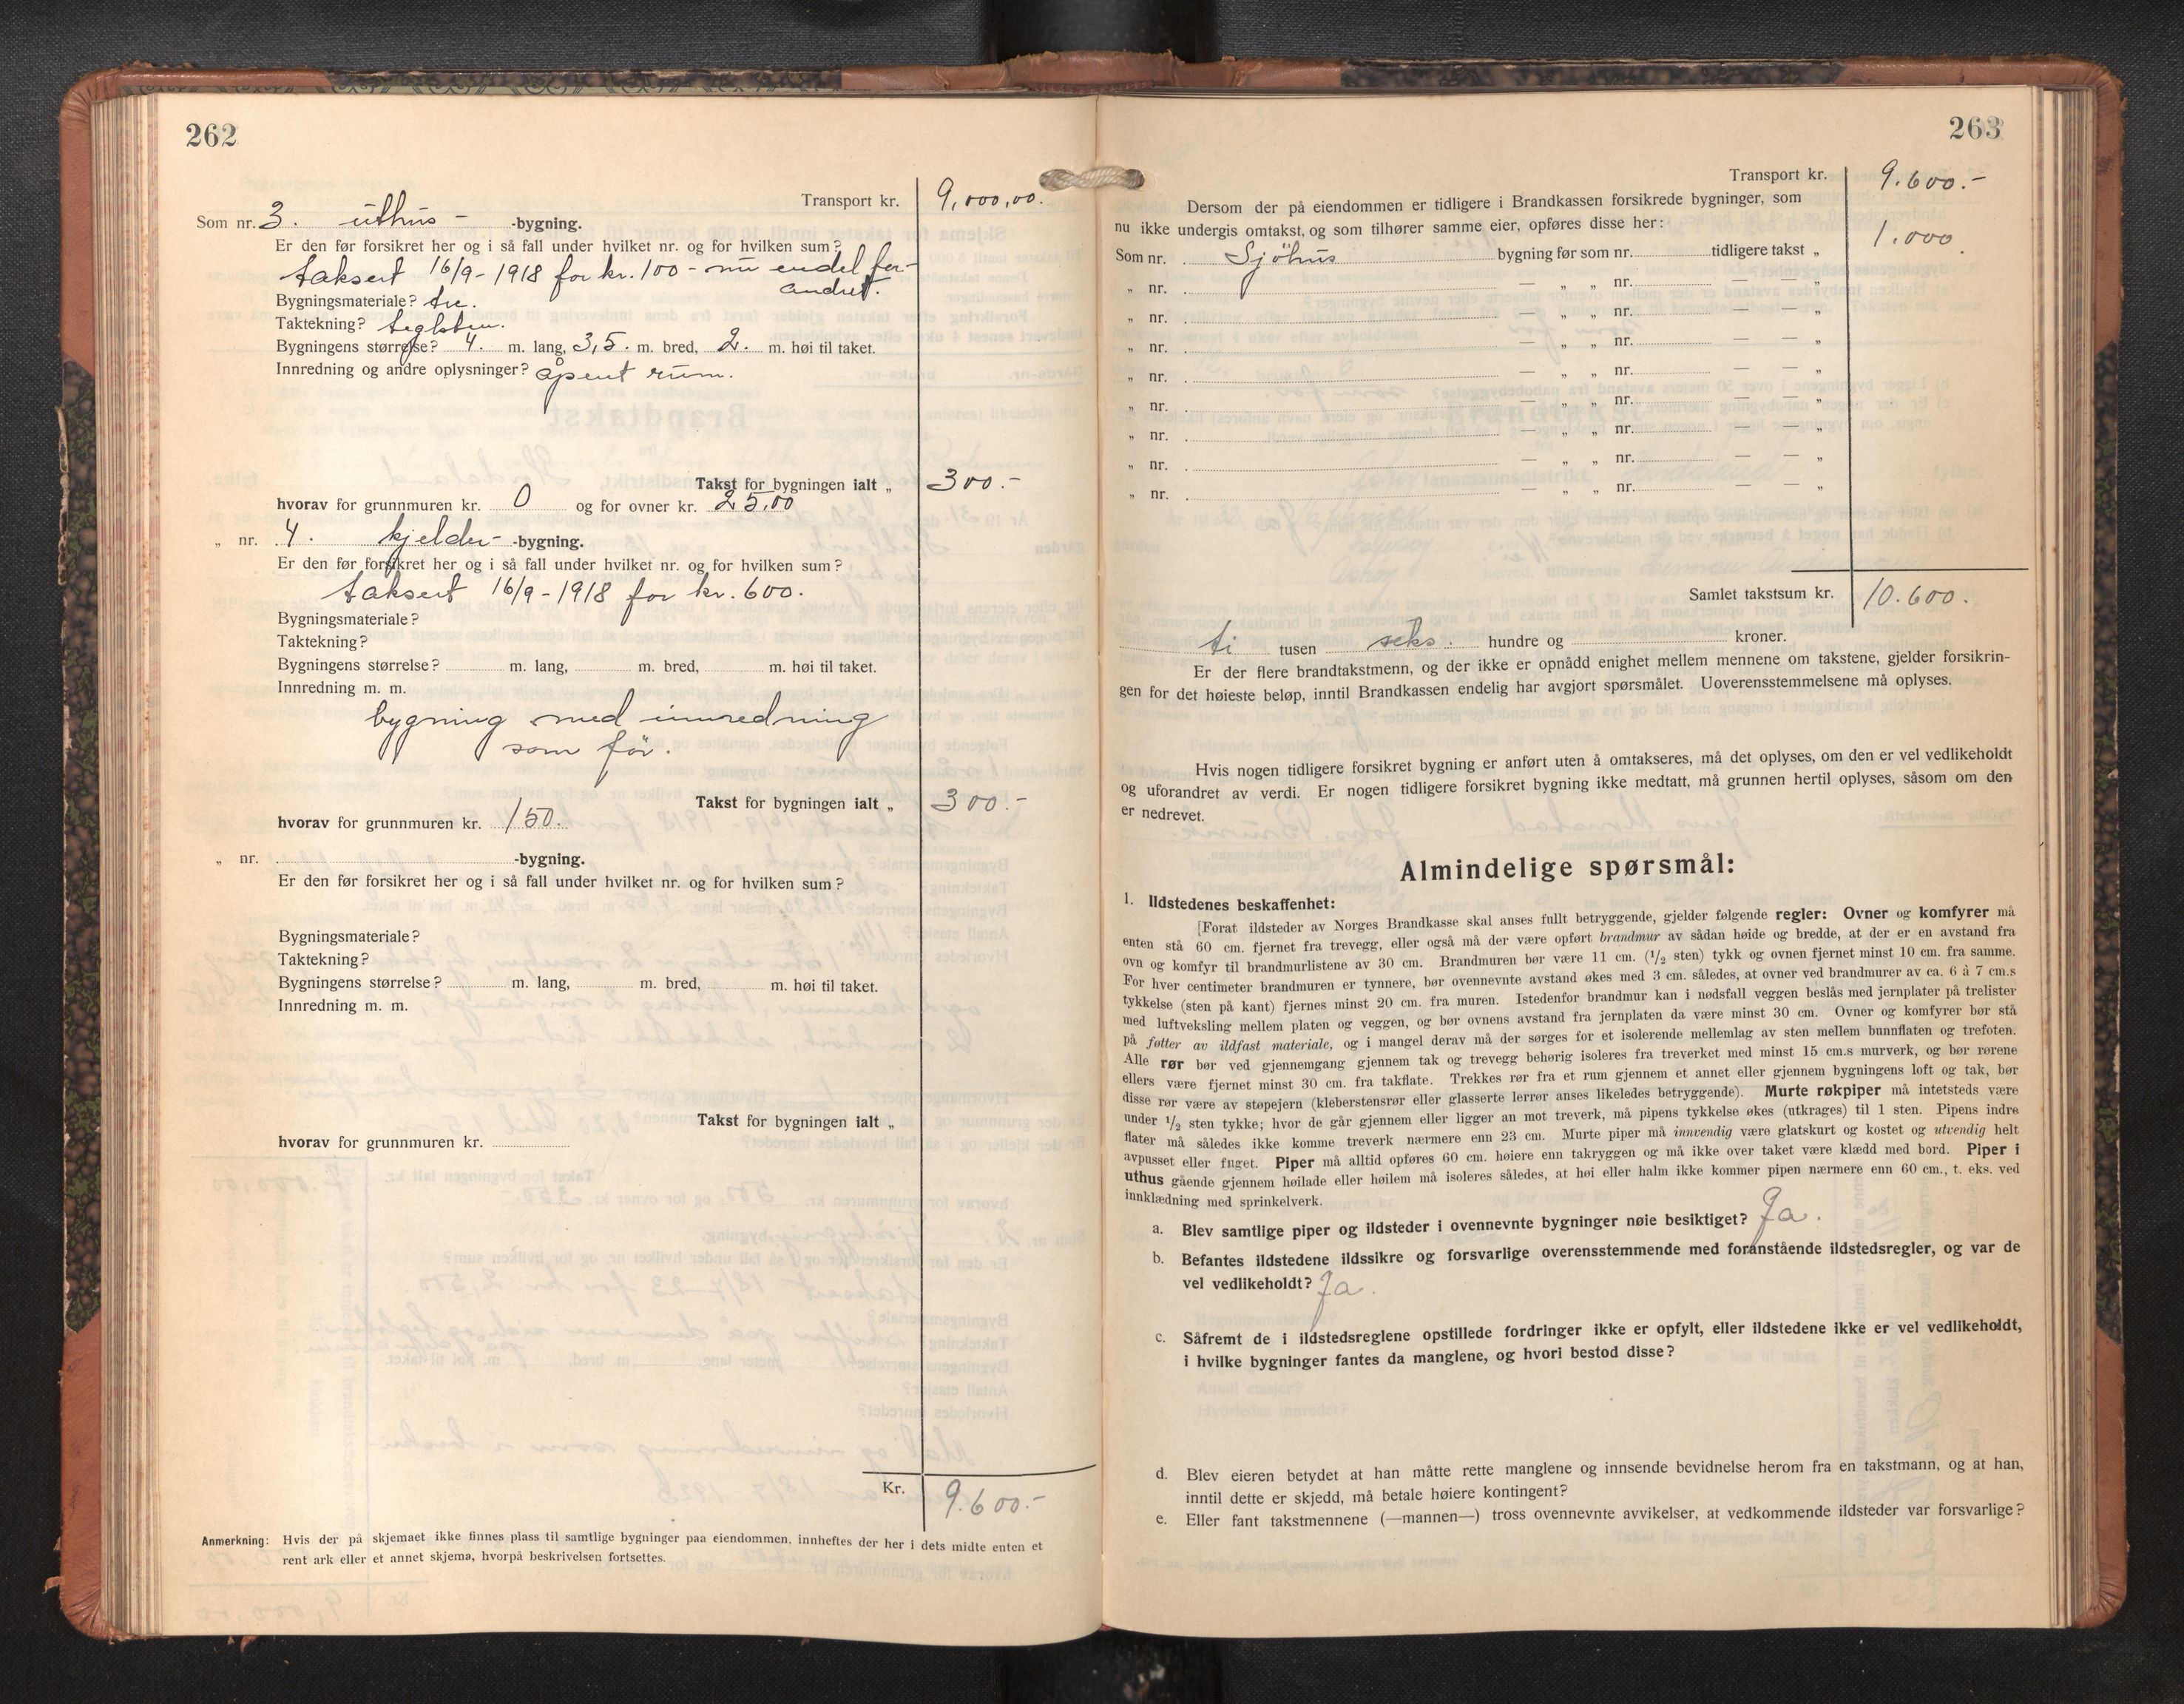 262
Transport kr. 9,000,00.
Som nr. 3. uthus- -bygning.
Er den før forsikret her og i så fall under hvilket nr. og for hvilken sum?
taksert 16/9-1918 for kr. 100 - nu endel for-
andret.
Bygningsmateriale? tre.
Taktekning? teglsten.
Bygningens størrelse? 4. m. lang, 3,5. m. bred, 2. m. høi til taket.
Innredning og andre oplysninger? åpent rum.
Takst for bygningen ialt „ 300.-
hvorav for grunnmuren kr. 0 og for ovner kr. 25,00
„ nr. 4. kjelder- -bygning.
Er den før forsikret her og i så fall under hvilket nr. og for hvilken sum?
taksert 16/9-1918 for kr. 600.
Bygningsmateriale?
Taktekning?
Bygningens størrelse? m. lang, m. bred, m. høi til taket.
Innredning m. m.
bygning med innredning
som før.
Takst for bygningen ialt „ 300.-
hvorav for grunnmuren kr. 150.
„ nr. -bygning.
Er den før forsikret her og i så fall under hvilket nr. og for hvilken sum?
Bygningsmateriale?
Taktekning?
Bygningens størrelse? m. lang, m. bred, m. høi til taket.
Innredning m. m.
Takst for bygningen ialt „
hvorav for grunnmuren kr.
Kr. 9.600.-
Anmerkning: Hvis der på skjemaet ikke finnes plass til samtlige bygninger paa eiendommen, innheftes der her i dets midte enten et
rent ark eller et annet skjema, hvorpå beskrivelsen fortsettes.
263
Transport kr. 9.600.-
Dersom der på eiendommen er tidligere i Brandkassen forsikrede bygninger, som
nu ikke undergis omtakst, og som tilhører samme eier, opføres disse her:
Som nr. Sjöhus bygning før som nr. tidligere takst „ 1.000.
„ nr. — „ „ nr. — — „
„ nr. — „ „ nr. — — „
„ nr. — „ „ nr. — — „
„ nr. — „ „ nr. — — „
„ nr. — „ „ nr. — — „
„ nr. — „ „ nr. — — „
„ nr. — „ „ nr. — — „
„ nr. — „ „ nr. — — „
Samlet takstsum kr. 10.600.
ti tusen seks. hundre og kroner.
Er der flere brandtakstmenn, og der ikke er opnådd enighet mellem mennene om takstene, gjelder forsikrin-
gen for det høieste beløp, inntil Brandkassen endelig har avgjort spørsmålet. Uoverensstemmelsene må oplyses.
Hvis nogen tidligere forsikret bygning er anført uten å omtakseres, må det oplyses, om den er vel vedlikeholdt
og uforandret av verdi. Er nogen tidligere forsikret bygning ikke medtatt, må grunnen hertil oplyses, såsom om den
er nedrevet.
Almindelige spørsmål:
1. Ildstedenes beskaffenhet:
[Forat ildsteder av Norges Brandkasse skal anses fullt betryggende, gjelder følgende regler: Ovner og komfyrer må
enten stå 60 cm. fjernet fra trevegg, eller også må der være opført brandmur av sådan høide og bredde, at der er en avstand fra
ovn og komfyr til brandmurlistene av 30 cm. Brandmuren bør være 11 cm. (1/2 sten) tykk og ovnen fjernet minst 10 cm. fra samme.
For hver centimeter brandmuren er tynnere, bør ovennevnte avstand økes med 3 cm. således, at ovner ved brandmurer av ca. 6 à 7 cm.s
tykkelse (sten på kant) fjernes minst 20 cm. fra muren. Istedenfor brandmur kan i nødsfall veggen beslås med jernplater på trelister
med luftveksling mellem platen og veggen, og bør ovnens avstand fra jernplaten da være minst 30 cm. Ovner og komfyrer bør stå
på føtter av ildfast materiale, og i mangel derav må der sørges for et isolerende mellemlag av sten mellem bunnflaten og trefoten.
Alle rør bør ved gjennemgang gjennem tak og trevegg behørig isoleres fra treverket med minst 15 cm.s murverk, og bør rørene
ellers være fjernet minst 30 cm. fra takflate. Trekkes rør fra et rum gjennem et annet eller gjennem bygningens loft og tak, bør
disse rør være av støpejern (kleberstensrør eller glasserte lerrør anses likeledes betryggende). Murte røkpiper må intetsteds være
under 1/2 sten tykke; hvor de går gjennem eller ligger an mot treverk, må pipens tykkelse økes (utkrages) til 1 sten. Pipens indre
flater må således ikke komme treverk nærmere enn 23 cm. Murte piper må innvendig være glatskurt og kostet og utvendig helt
avpusset eller fuget. Piper må alltid opføres 60 cm. høiere enn takryggen og må ikke over taket være klædd med bord. Piper i
uthus gående gjennem høilade eller høilem må isoleres således, at høi eller halm ikke kommer pipen nærmere enn 60 cm., t. eks. ved
innklædning med sprinkelverk.
a. Blev samtlige piper og ildsteder i ovennevnte bygninger nøie besiktiget? Ja.
b. Befantes ildstedene ildssikre og forsvarlige overensstemmende med foranstående ildstedsregler, og var de
vel vedlikeholdt? Ja.
c. Såfremt de i ildstedsreglene opstillede fordringer ikke er opfylt, eller ildstedene ikke er vel vedlikeholdt,
i hvilke bygninger fantes da manglene, og hvori bestod disse?
d. Blev eieren betydet at han måtte rette manglene og innsende bevidnelse herom fra en takstmann, og at han,
inntil dette er skjedd, må betale høiere kontingent?
e. Eller fant takstmennene (—mannen—) tross ovennevnte avvikelser, at vedkommende ildsteder var forsvarlige?